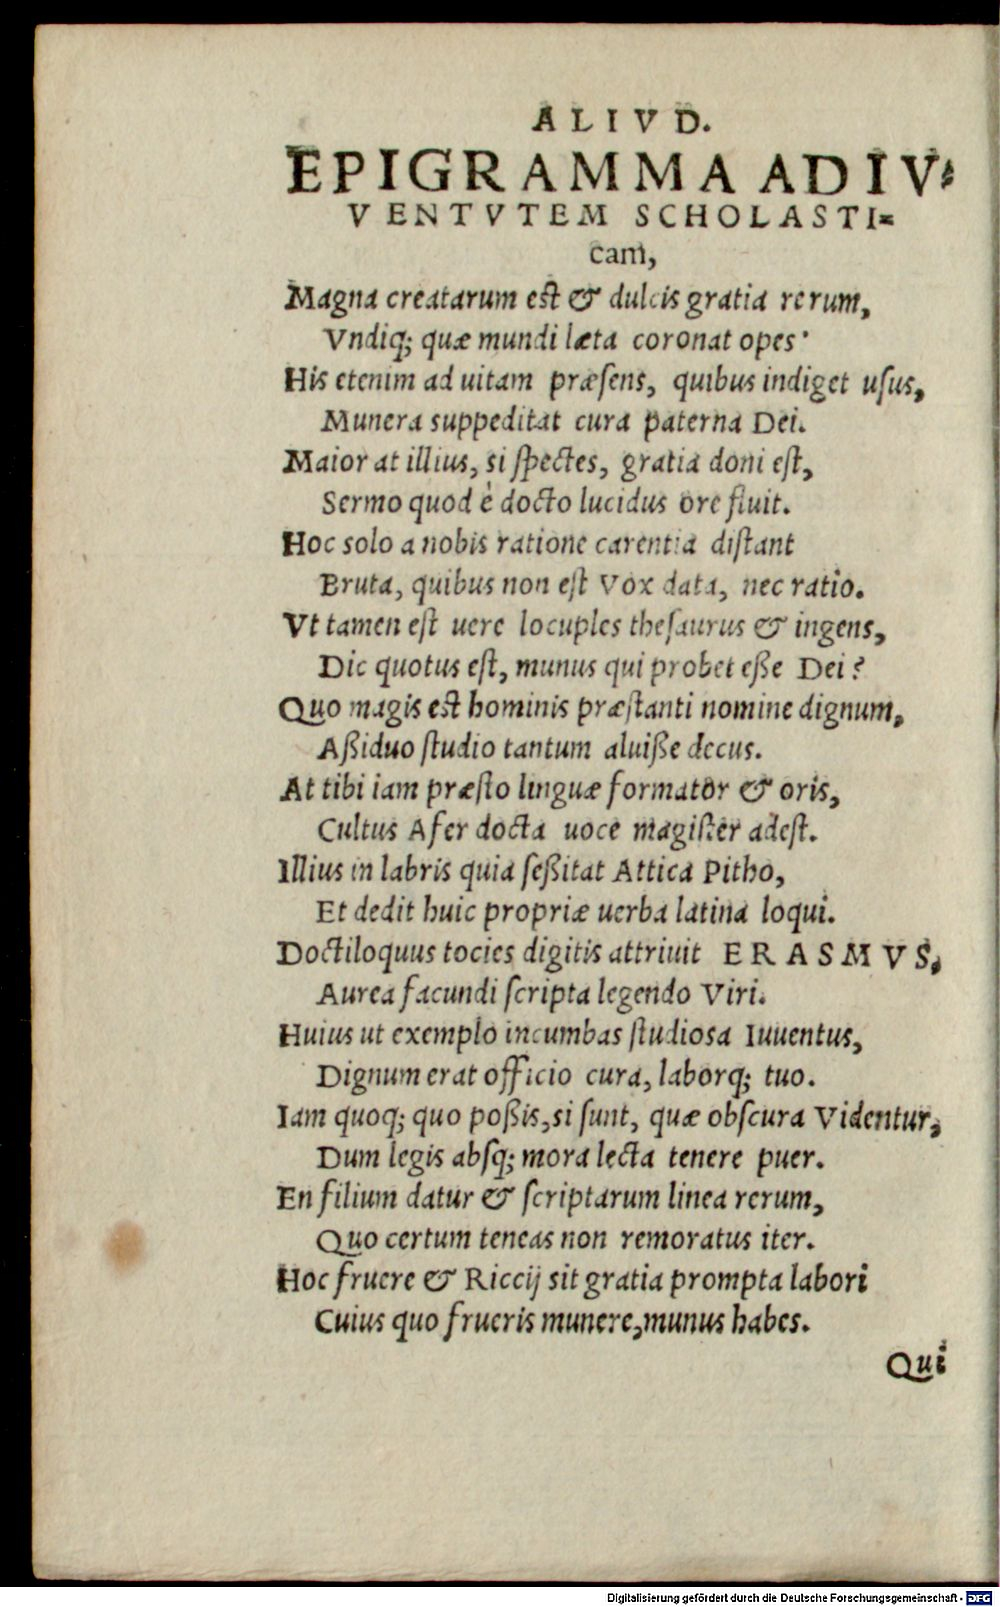 ALIVD.
EPIGRAMMA AD IV⸗
VENTVTEM SCHOLASTI⸗
cam,
Magna creatarum est & dulcis gratia rerum,
Vndiq; quæ mundi læta coronat opes·
His etenim ad uitam præſens, quibus indiget uſus,
Munera suppeditat cura paterna Dei.
Maior at illius, si ſpectes, gratia doni eſt,
Sermo quod è docto lucidus ore fluit.
Hoc solo a nobis ratione carentia diſtant
Bruta, quibus non eſt Vox data, nec ratio.
Vt tamen eſt uere locuples theſaurus & ingens,
Dic quotus eſt, munus qui probet eße Dei?
Quo magis est hominis præſtanti nomine dignum,
Aßiduo ſtudio tantum aluiße decus.
At tibi iam præſto linguæ formator & oris,
Cultus Afer docta uoce magiſter adeſt.
Illius in labris quia ſeßitat Attica Pitho,
Et dedit huic propriæ uerba latina loqui.
Doctiloquus tocies digitis attriuit ERASMVS,
Aurea facundi ſcripta legendo Viri.
Huius ut exemplo incumbas ſtudiosa Iuuentus,
Dignum erat officio cura, laborq; tuo.
Iam quoq; quo poßis, si ſunt, quæ obſcura Videntur,
Dum legis abſq; mora lecta tenere puer.
En filium datur & ſcriptarum linea rerum,
Quo certum teneas non remoratus iter.
Hoc fruere & Riccij sit gratia prompta labori
Cuius quo frueris munere, munus habes.
Qui
Digitalisierung gefördert durch die Deutsche Forschungsgemeinschaft - DFG